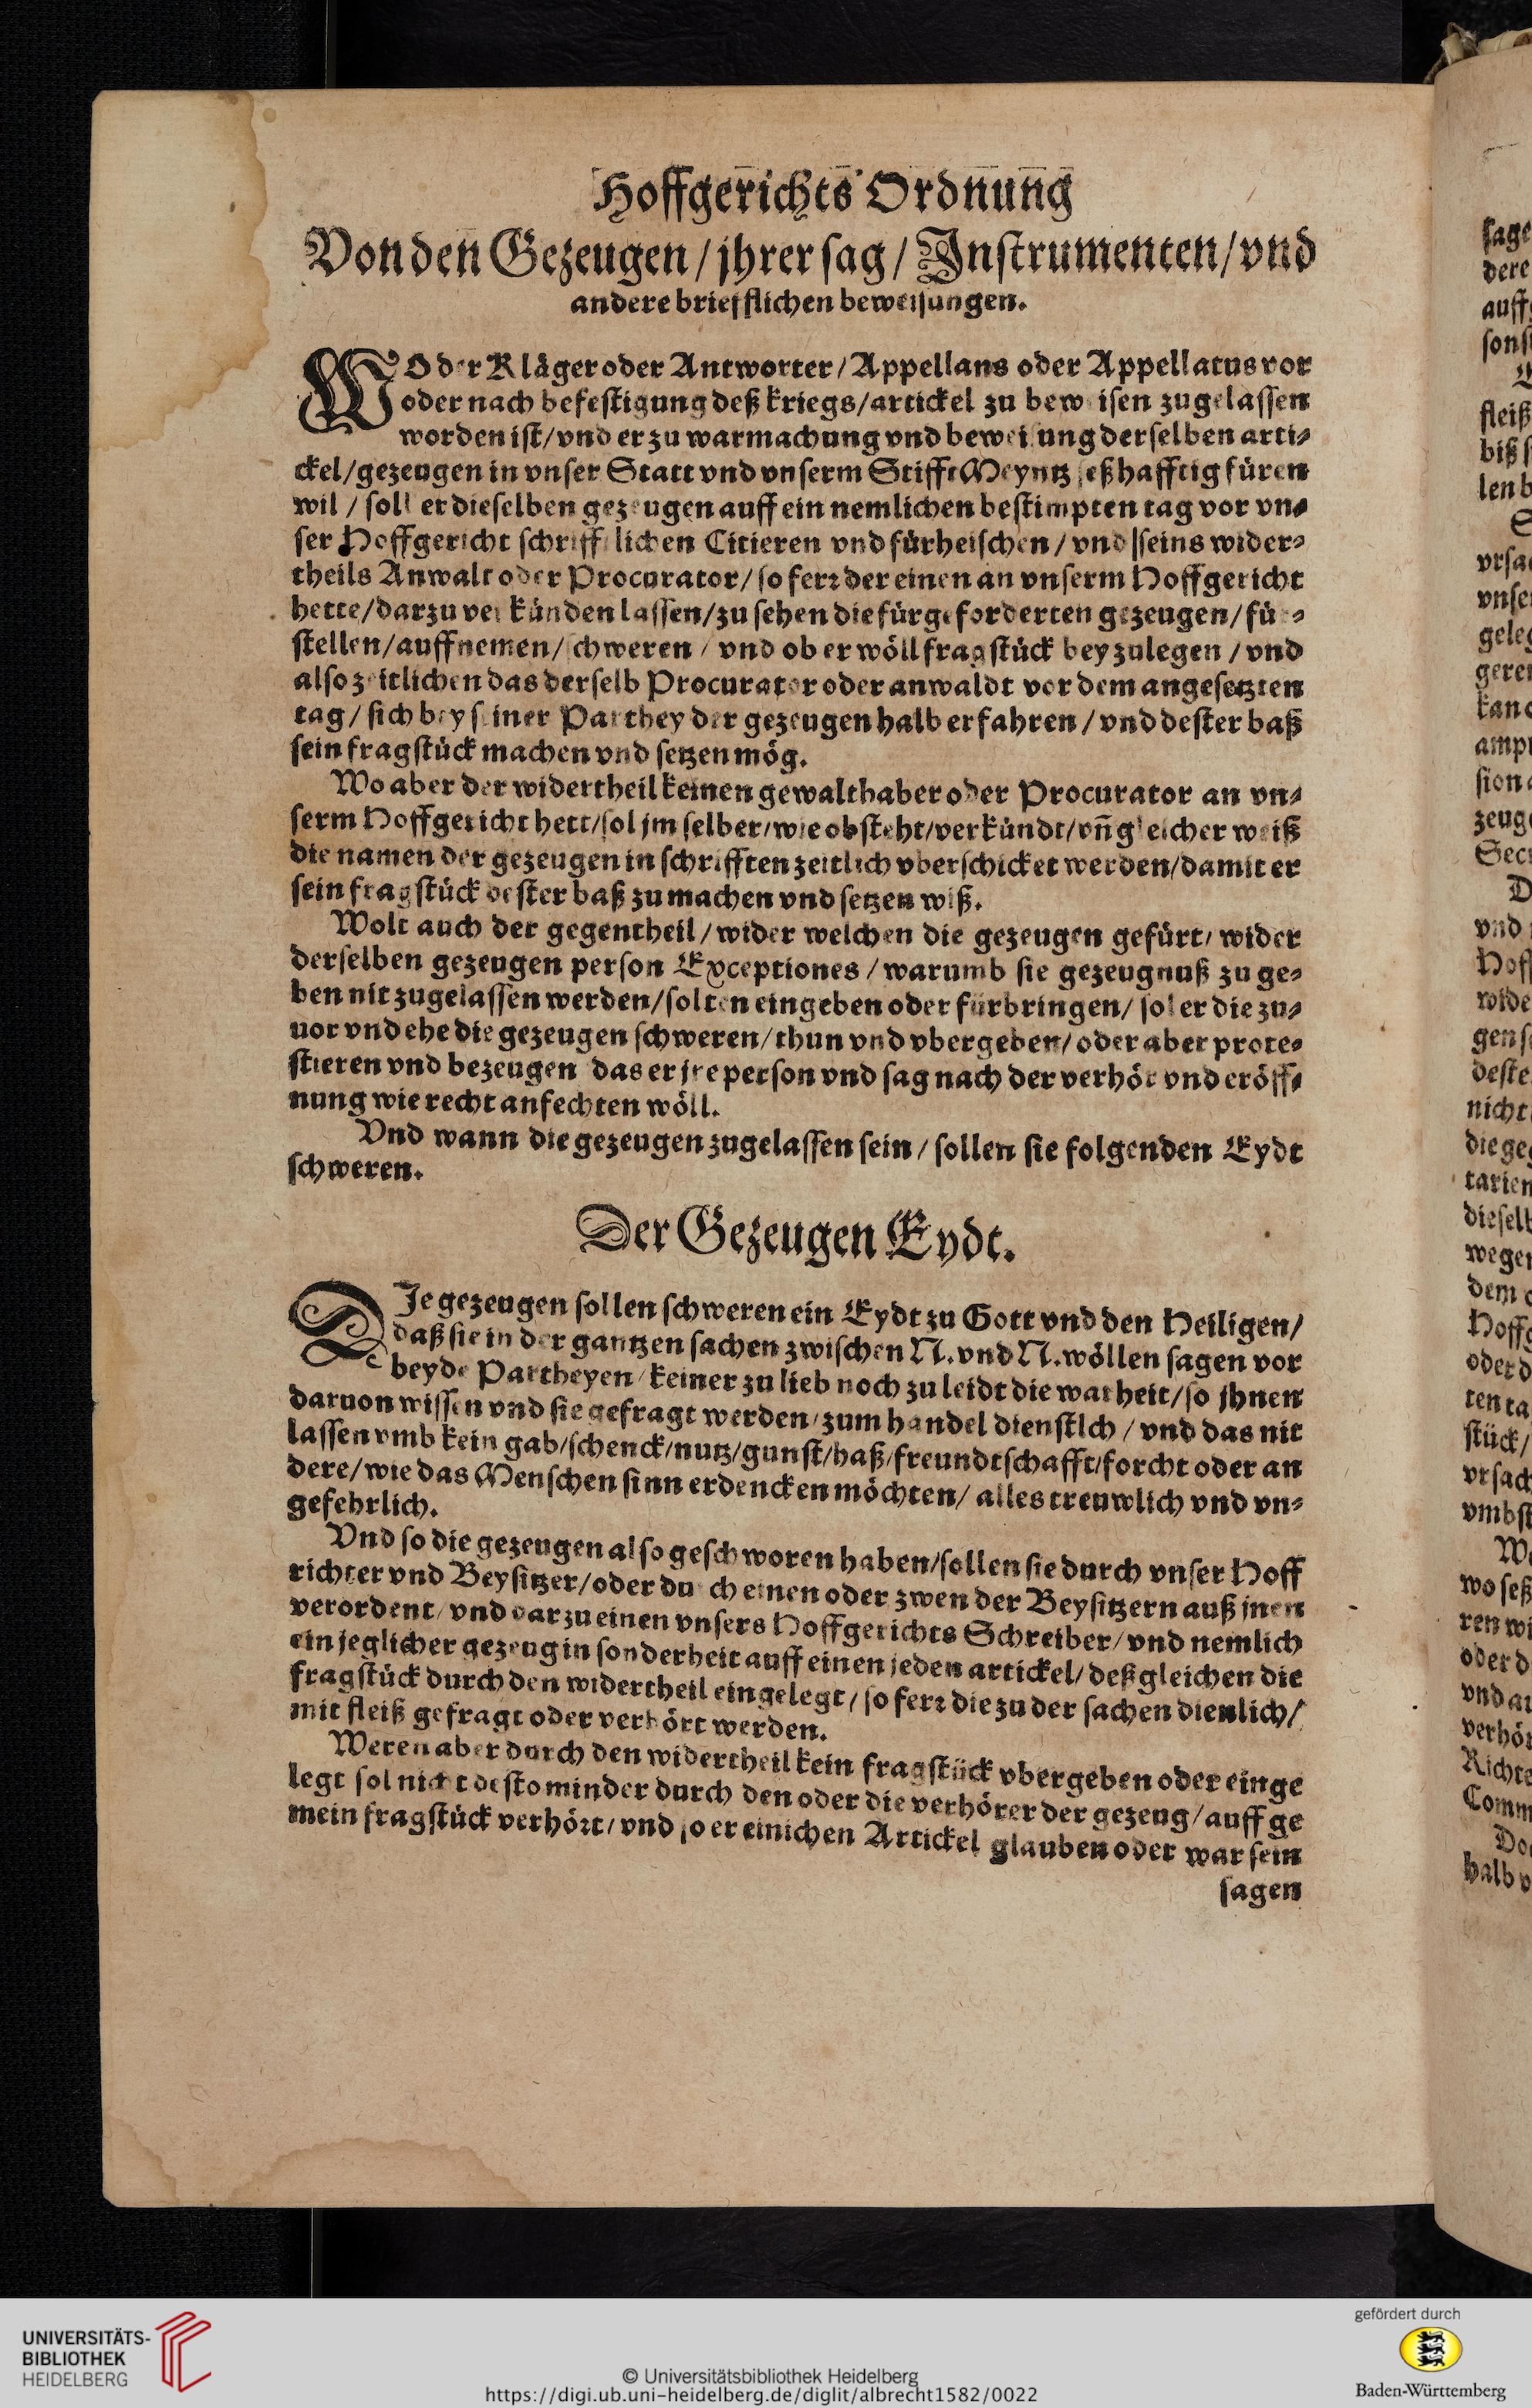 Hoffgerichts Ordnung
Von den Gezeugen / jhrer sag / Instrumenten / vnd
andere briefflichen beweisungen.
WO der Kläger oder Antworter / Appellans oder Appellatus vor
oder nach befestigung deß kriegs / artickel zu beweisen zugelassen
worden ist / vnd er zu warmachung vnd beweisung derselben arti⸗
ckel / gezeugen in vnser Statt vnd vnserm Stifft Meyntz seßhafftig füren
wil / soll er dieselben gezeugen auff ein nemlichen bestimpten tag vor vn⸗
ser Hoffgericht schrifftlichen Citieren vnd fürheischen / vnd seins wider⸗
theils Anwalt oder Procurator / so ferr der einen an vnserm Hoffgericht
hette / darzu verkünden lassen / zu sehen die fürgeforderten gezeugen / für⸗
stellen / auffnemen / schweren / vnd ob er wöll fragstück beyzulegen / vnd
also zeitlichen das derselb Procurator oder anwaldt vor dem angesetzten
tag / sich bey seiner Parthey der gezeugen halb erfahren / vnd dester baß
sein fragstück machen vnd setzen mög.
Wo aber der widertheil keinen gewalthaber oder Procurator an vn⸗
serm Hoffgericht hett / sol jm selber / wie obsteht / verkündt / vñ gleicher weiß
die namen der gezeugen in schrifften zeitlich vberschicket werden / damit er
sein fragstück dester baß zu machen vnd setzen wiß.
Wolt auch der gegentheil / wider welchen die gezeugen gefürt / wider
derselben gezeugen person Exceptiones / warumb sie gezeugnuß zu ge⸗
ben nit zugelassen werden / solten eingeben oder fürbringen / sol er die zu⸗
uor vnd ehe die gezeugen schweren / thun vnd vbergeben / oder aber prote⸗
stieren vnd bezeugen das er jre person vnd sag nach der verhör vnd eröff⸗
nung wie recht anfechten wöll.
Vnd wann die gezeugen zugelassen sein / sollen sie folgenden Eydt
schweren.
Der Gezeugen Eydt.
DJe gezeugen sollen schweren ein Eydt zu Gott vnd den Heiligen /
daß sie in der gantzen sachen zwischen N. vnd N. wöllen sagen vor
beyde Partheyen / keiner zu lieb noch zu leidt die warheit / so jhnen
daruon wissen vnd sie gefragt werden / zum handel dienstlch / vnd das nit
lassen vmb kein gab / schenck / nutz / gunst / haß / freundtschafft / forcht oder an
dere / wie das Menschen sinn erdencken möchten / alles treuwlich vnd vn⸗
gefehrlich.
Vnd so die gezeugen also geschworen haben / sollen sie durch vnser Hoff
richter vnd Beysitzer / oder durch einen oder zwen der Beysitzern auß jnen
verordent / vnd darzu einen vnsers Hoffgerichts Schreiber / vnd nemlich
ein jeglicher gezeug in sonderheit auff einen jeden artickel / deßgleichen die
fragstück durch den widertheil eingelegt / so ferr die zu der sachen dienlich /
mit fleiß gefragt oder verhört werden.
Weren aber durch den widertheil kein fragstück vbergeben oder einge
legt sol nicht desto minder durch den oder die verhörer der gezeug / auff ge
mein fragstück verhört / vnd so er einichen Artickel glauben oder war sein
sagen
UNIVERSITÄTS-
BIBLIOTHEK
HEIDELBERG
© Universitätsbibliothek Heidelberg
https://digi.ub.uni-heidelberg.de/diglit/albrecht1582/0022
gefördert durch
Baden-Württemberg